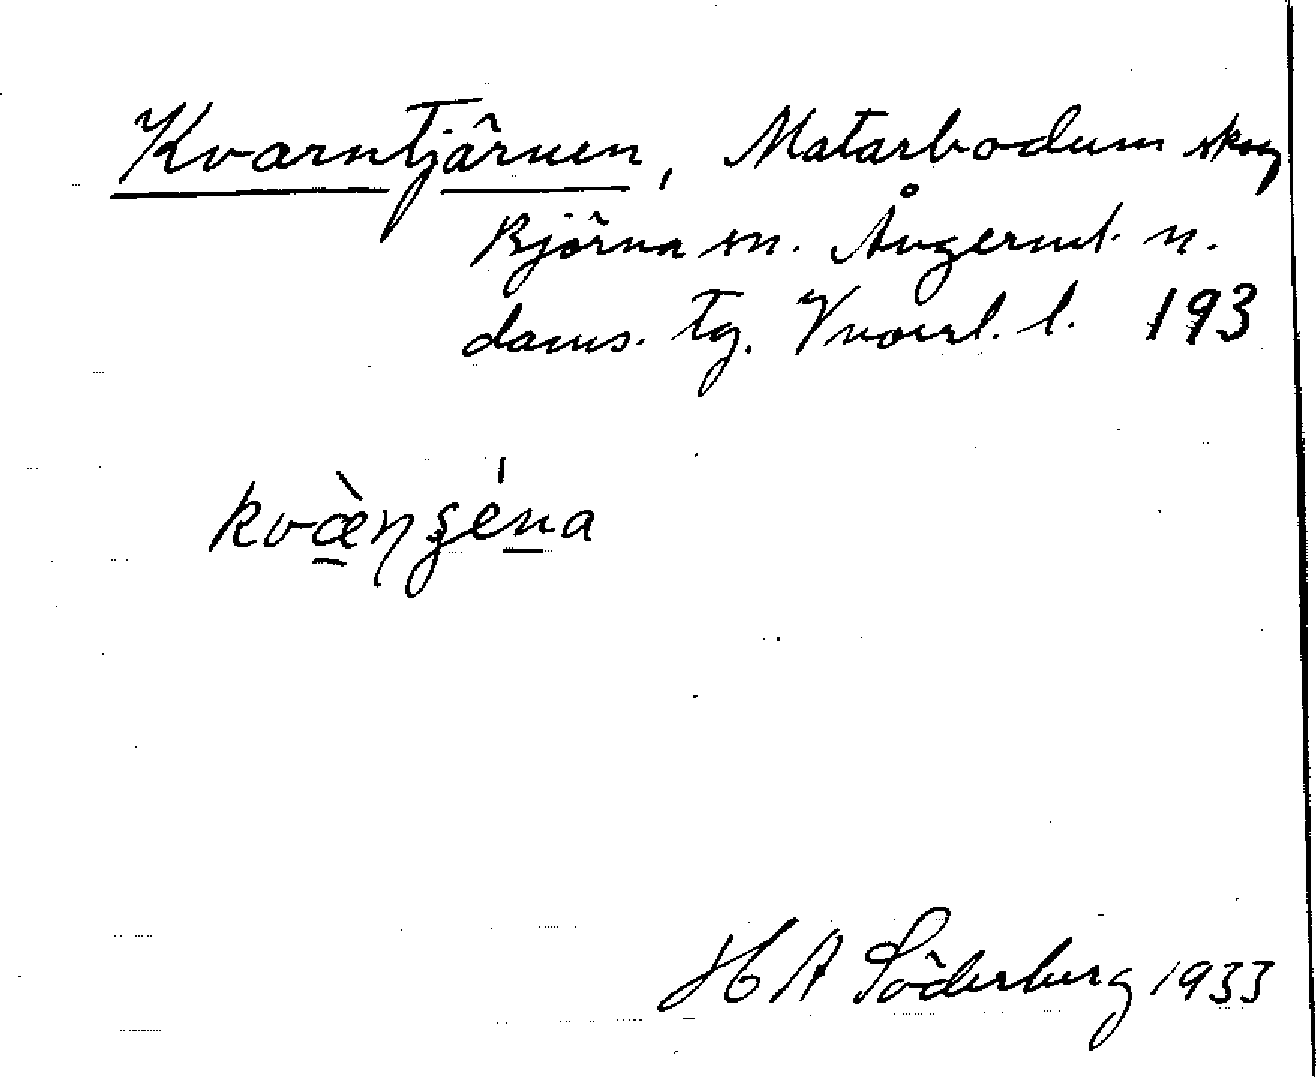 Kvarntjärnen, Matarbodum skog
Björna sn. Ångerml. n.
doms. tg. l. 193
kvæ̀nʂéna
H A Söderberg 1933